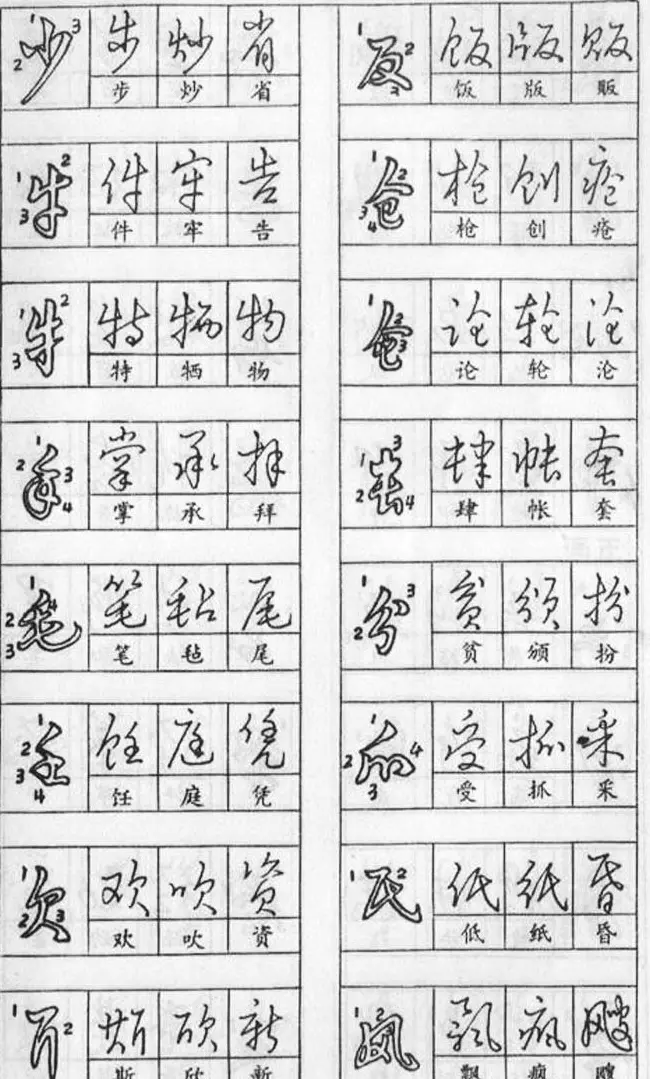 少 步 炒 省
步 炒 省
牛 件 牢 告
件 牢 告
牛 特 牺 物
特 牺 物
手 掌 承 拜
掌 承 拜
毛 笔 毡 尾
笔 毡 尾
壬 饪 庭 凭
饪 庭 凭
欠 欢 吹 资
欢 吹 资
斤 斯 欣 新
斯 欣 新
反 饭 版 贩
饭 版 贩
仓 枪 创 疮
枪 创 疮
仑 论 轮 沦
论 轮 沦
长 肆 帐 套
肆 帐 套
分 贫 颁 扮
贫 颁 扮
爪 受 抓 采
受 抓 采
氏 低 纸 昏
低 纸 昏
风 飘 疯 飕
飘 疯 飕